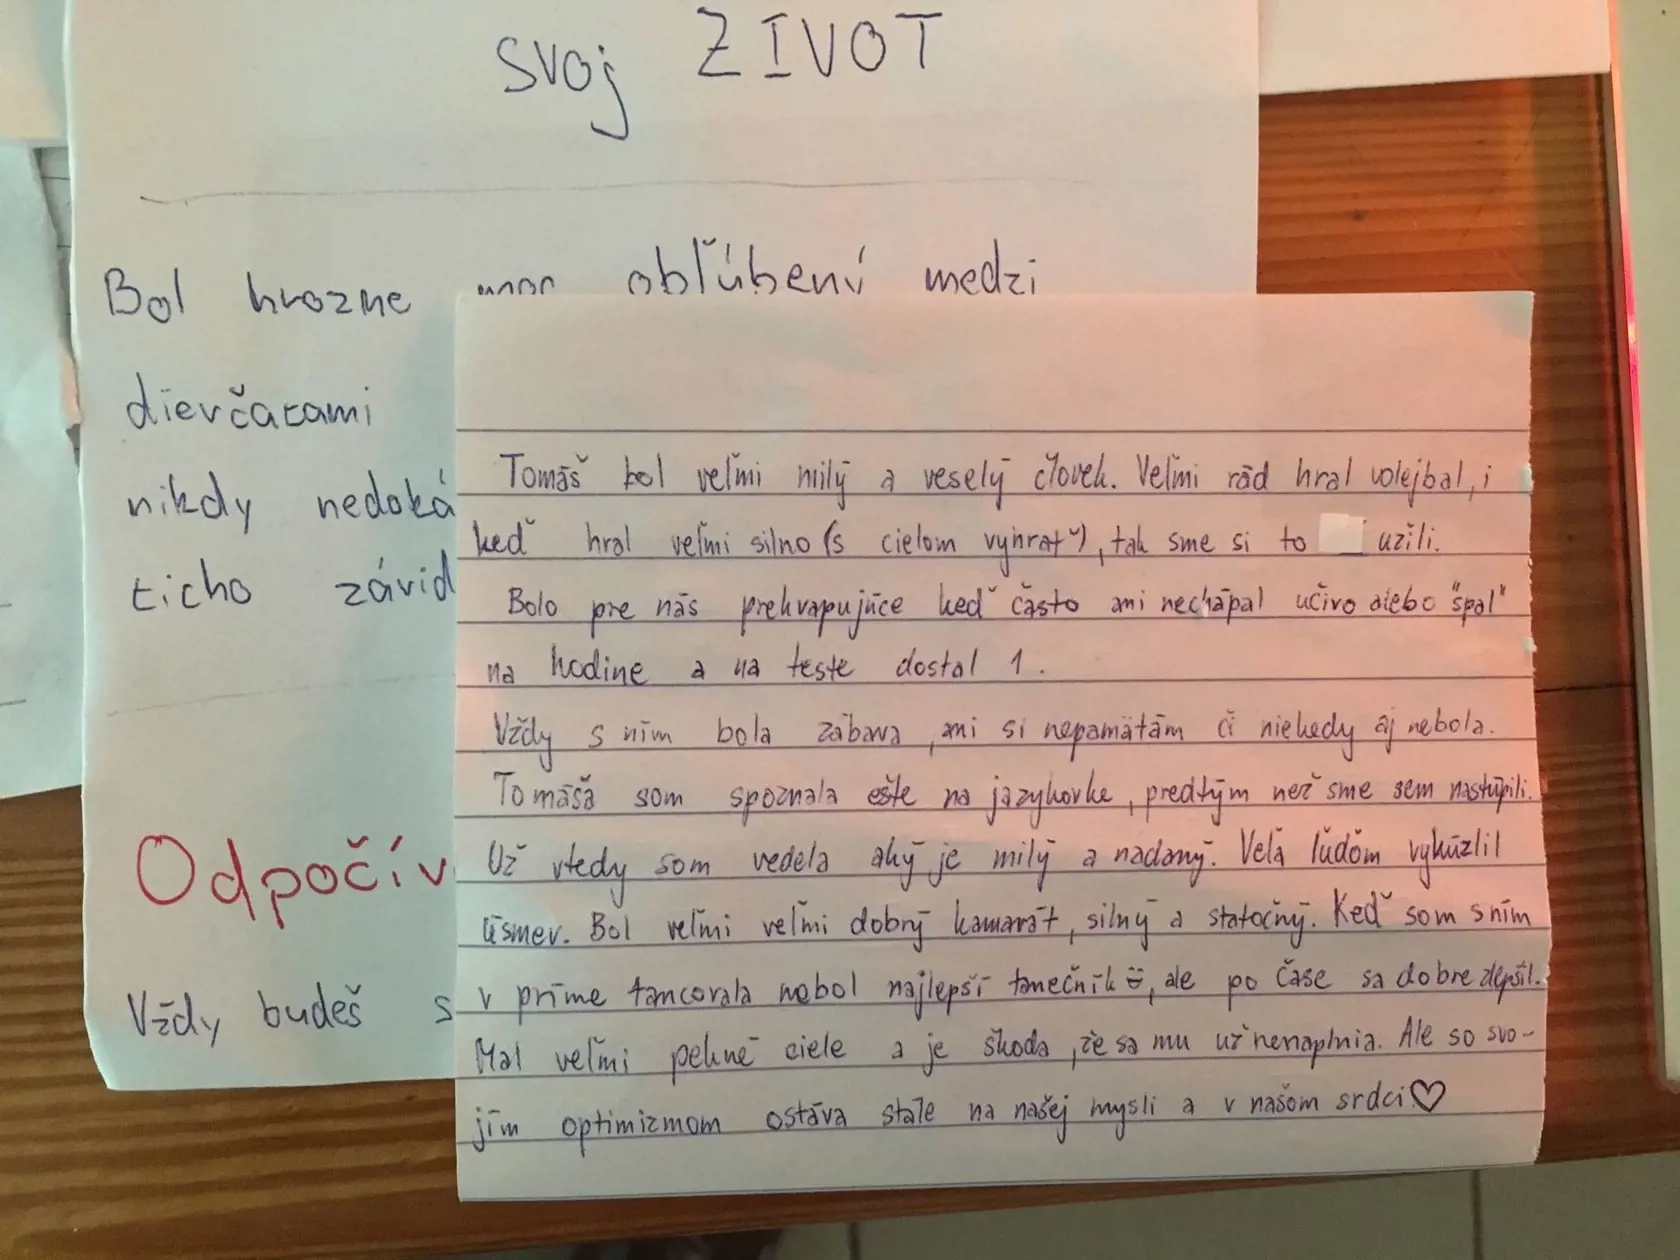 svoj ZIVOT
Bol hrozne obľúbený medzi
dievčatami
nikdy nedoká
ticho závid
Odpočív
Vždy budeš s
Tomáš bol veľmi milý a veselý človek. Veľmi rád hral volejbal, i
keď hral veľmi silno (s cielom vyhrať), tak sme si to uzili.
Bolo pre nás prekvapujúce keď často ani nechápal učivo alebo "spal"
na hodine a na teste dostal 1.
Vždy s ním bola zábava, ani si nepamätám či niekedy aj nebola.
Tomáša som spoznala ešte na jazykovke, predtým než sme sem nastúpili.
Už vtedy som vedela aký je milý a nadaný. Veľa ľuďom vykúzlil
úsmev. Bol veľmi veľmi dobrý kamarát, silný a statočný. Keď som s ním
v príme tancovala nebol najlepší tanečník, ale po čase sa dobre zlepšil.
Mal veľmi pekné ciele a je škoda, že sa mu už nenaplnia. Ale so svo-
jím optimizmom ostáva stále na našej mysli a v našom srdci ♡